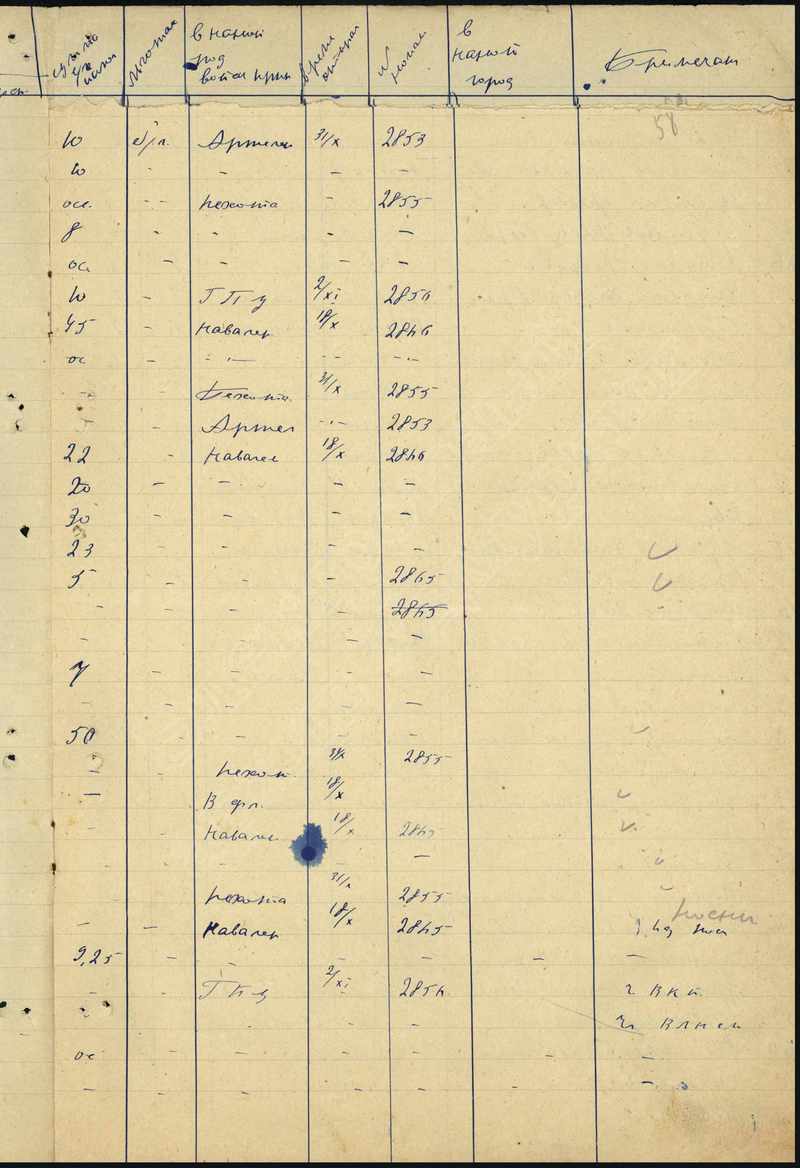 льготах
в какой род войск прин
время отправл
№ команд
в какой город
Примечан
58
10 б/л. Артелен 31/x 2853
10 - - - -
ос. - - пехота - 2855
8 - - - -
ос - - - -
10 - ГПУ 2/xi 2856
45 - Кавалер 18/x 2846
ос - - - -
- - Пехота 31/x 2855
- - Артел - 2853
22 - Кавалер 18/x 2846
20 - - - -
30 - - - -
23 - - - -
5 - - - 2865
- - - - 2845
- - -
7 - - - -
- - - - -
50 - - - -
- - пехот. 31/x 2855
- В фл. 18/x
- - Кавалер 18/x 2845
- - - -
пехота 31/x 2855
- - Кавалер 18/x 2845
9,25 - - - - - -
- - ГПУ 2/xi 2856 ч ВКП.
- - - чл ВЛКСМ
ос - - - - - -
- - - - - - -